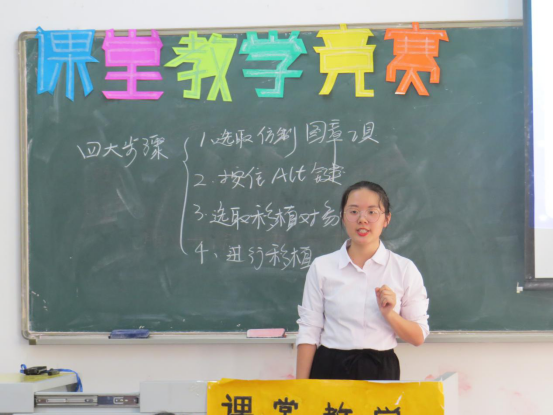 课堂教学竞赛
四大步骤
1.选取仿制图章工具
2.按住Alt键
3.选取移植对
4、进行移植
课堂教学